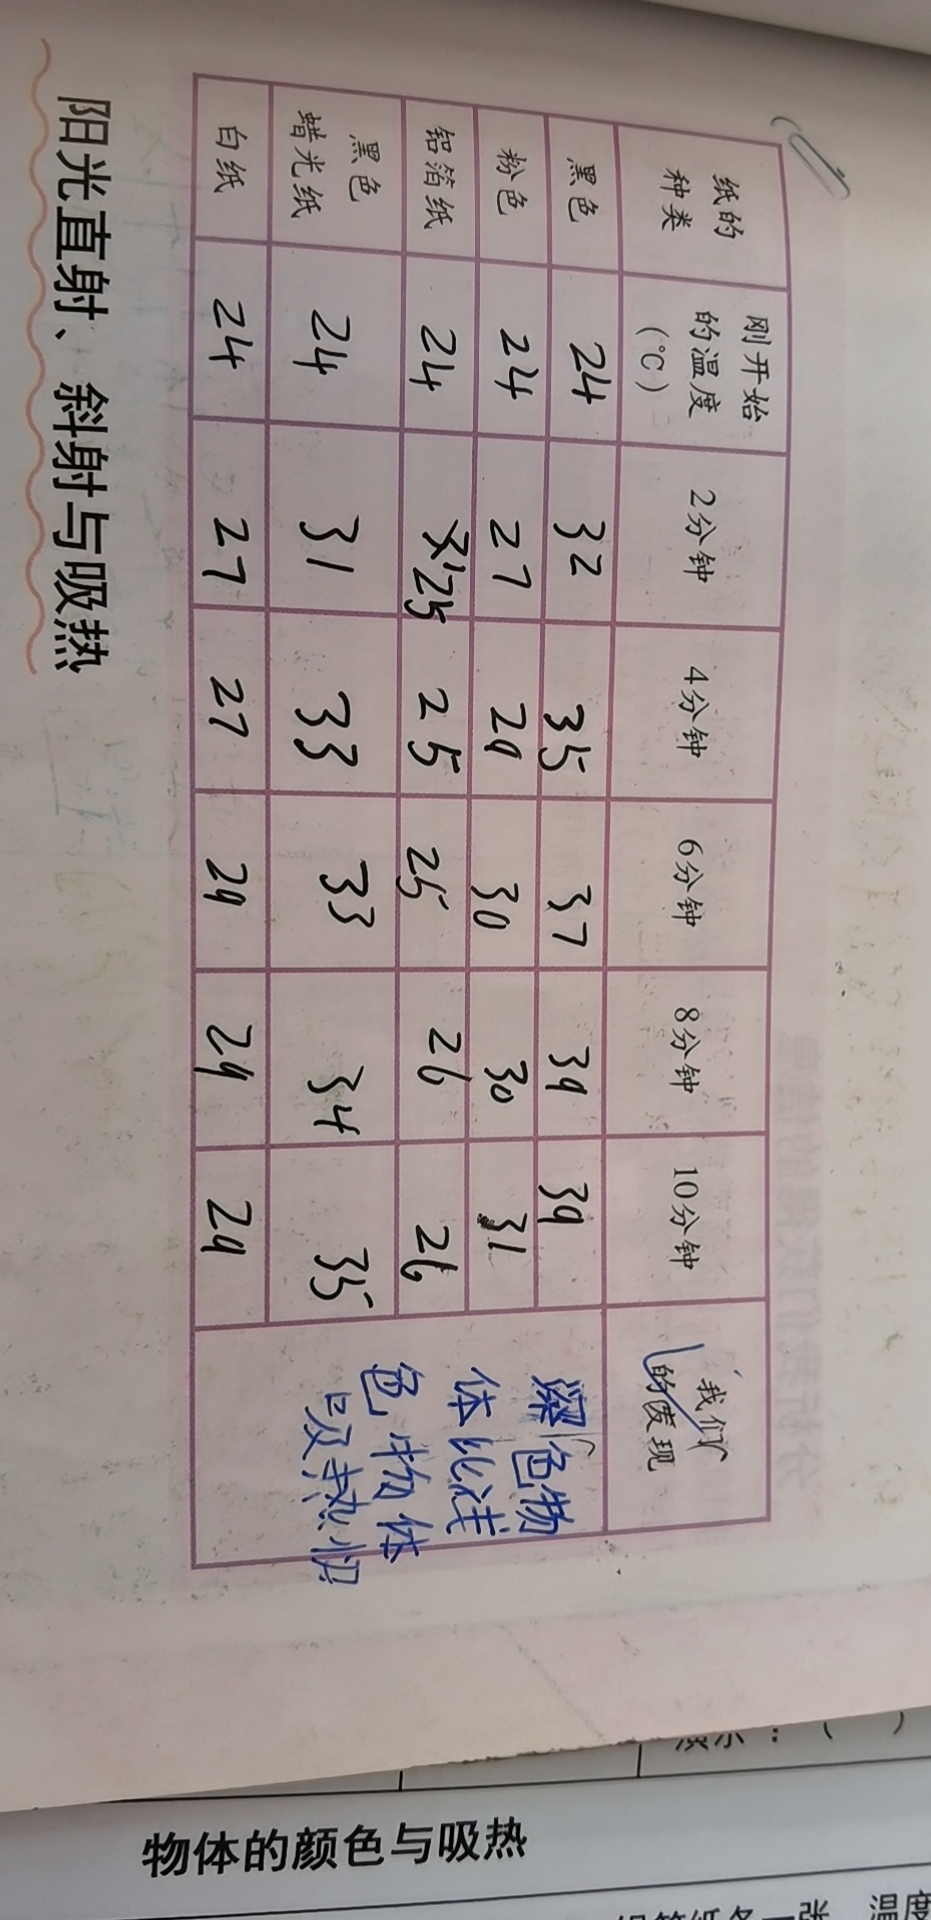 纸的种类 刚开始的温度(℃) 2分钟 4分钟 6分钟 8分钟 10分钟 我们的发现
黑色 24 32 35 37 39 39
粉色 24 27 29 30 30 31
铝箔纸 24 25 25 25 26 26
黑色蜡光纸 24 31 33 33 34 35
白纸 24 27 27 29 29 29
深色物
体比浅
色物体
吸热快
阳光直射、斜射与吸热
物体的颜色与吸热